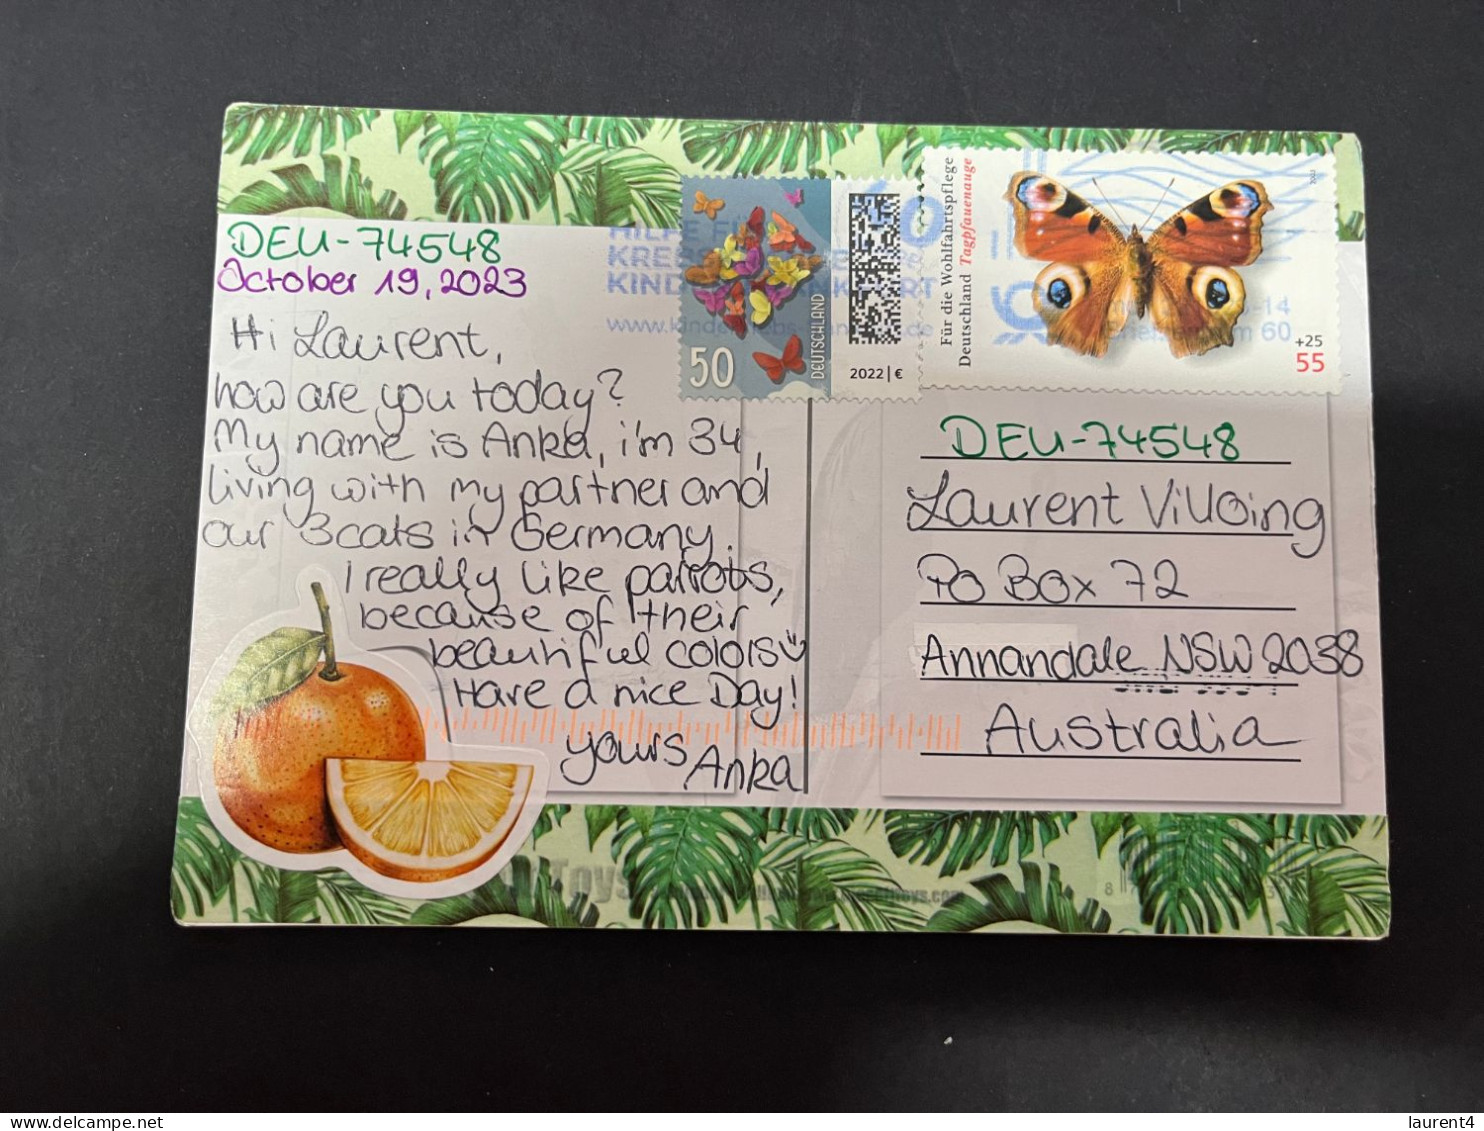 DEU-74548
October 19, 2023
Hi Laurent,
how are you today?
My name is Anka, i'm 34,
living with my partner and
our 3 cats in Germany.
I really like parrots,
because of their
beautiful colors
Have a nice Day!
yours
Anka
HILFE FÜ
KREBS
KIND
www.kinderkrebs
50
DEUTSCHLAND
2022 | €
Für die Wohlfahrtspflege
Deutschland Tagpfauenauge
+25
55
DEU-74548
Laurent Villoing
PO Box 72
Annandale NSW 2038
Australia
Toys
laurent4